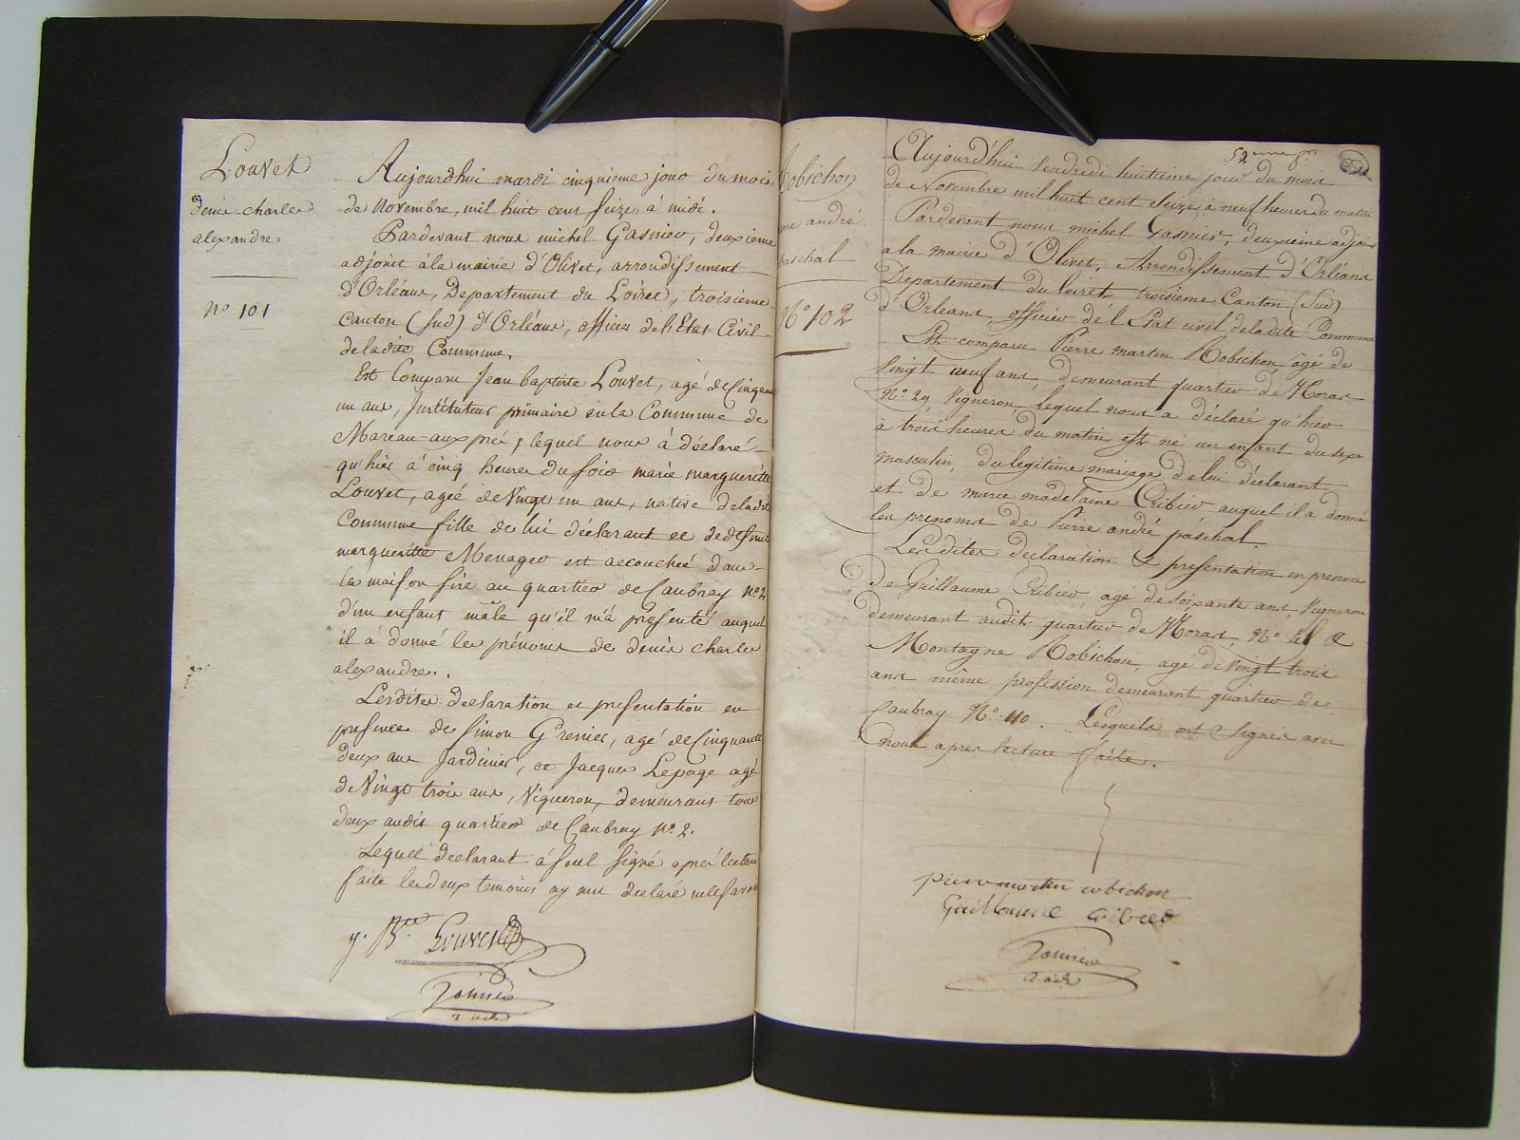 Louvet
denis charles
alexandre
no 101
Aujourdhui mardi cinquieme jour du mois
de Novembre, mil huit cent seize, à midi.
Pardevant nous michel Gasnier, deuxieme
adjoint à la mairie d'Olivet, arrondissement
d'Orléans, Departement du Loiret, troisieme
Canton (sud) d'Orléans, officier de l'Etat Civil
de ladite Commune.
Est Comparu Jean baptiste Louvet, agé de Cinquante
un ans, Instituteur primaire en la Commune de
Mareau-aux-prés, lequel nous à déclaré
qu'hier à cinq heures du soir marie margueritte
Louvet, agée de Vingt un ans, native de ladite
Commune fille de lui déclarant et de defunte
margueritte Menager est accouchée dans
la maison sise au quartier de Caubray no 2
d'un enfant mâle qu'il m'a presenté auquel
il à donné les prénoms de denis charles
alexandre.
Lesdites declaration et presentation en
presence de Simon Grenier, agé de Cinquante
deux ans Jardinier, et Jacques Lepage agé
de Vingt trois ans, Vigneron, demeurans tous
deux audit quartier de Caubray no 2.
Lequel declarant à seul signé après lecture
faite les deux temoins ay ant declaré ne le savoir
J. Bte Louvet
Gasnier
adt
52eme f.
Robichon
andré
paschal
No 102
Aujourd'hui vendredi huitieme jour du mois
de Novembre mil huit cent seize, à neuf heures du matin
Pardevant nous michel Gasnier, deuxieme adjoint
a la mairie d'Olivet, Arrondissement d'Orléans
Departement du loiret, troisieme Canton (Sud)
d'Orleans, officier de l'Etat civil de ladite Commune
Est comparu Pierre martin Robichon agé de
Vingt neuf ans, demeurant quartier de Moras
No 29 Vigneron, lequel nous a déclaré qu'hier
à trois heures du matin est né un enfant du sexe
masculin, du legitime mariage de lui déclarant
et de marie madelaine Cribier auquel il a donné
les prenoms de Pierre andré páschal.
Lesdites déclaration & presentation en presence
de Guillaume Cribier, agé de soixante ans, Vigneron
demeurant audit quartier de Moras No &
Montagne Robichon, agé de vingt trois
ans même profession demeurant quartier de
Caubray No 40. Lesquels ont signés avec
nous apres lecture faite.
pierre martin robichon
Guillaume cribier
Gasnier
adt